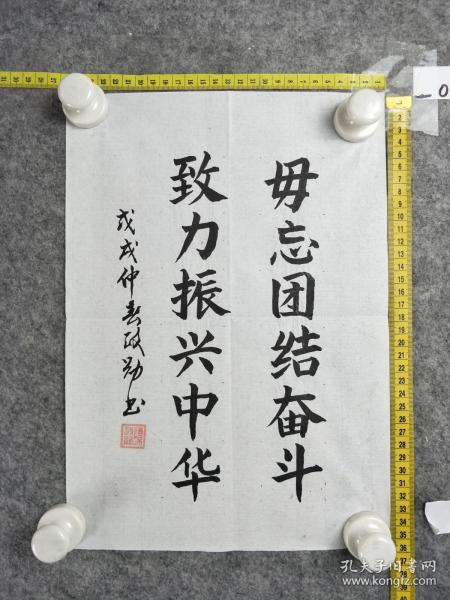 毋忘团结奋斗
致力振兴中华
戊戌仲春政勋书
孔夫子旧书网
www.kongfz.com